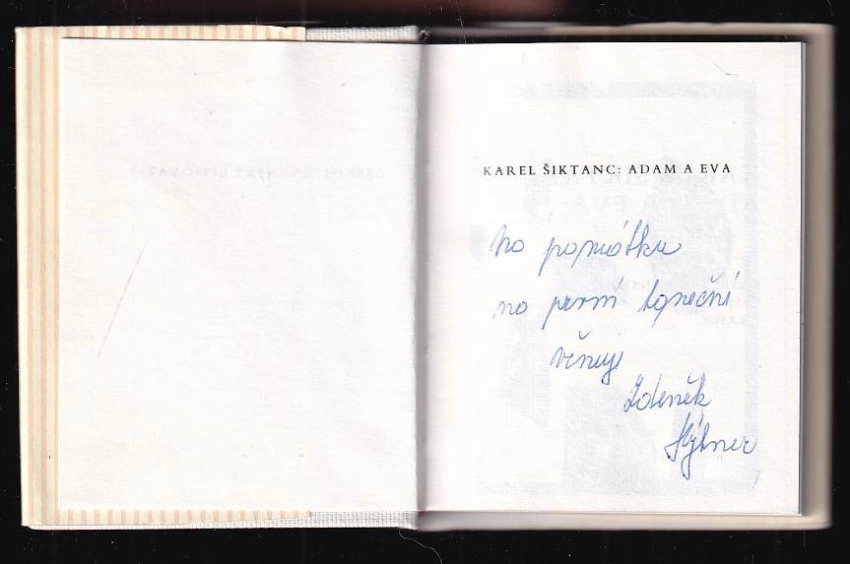 KAREL ŠIKTANC: ADAM A EVA
Na památku
na první taneční
věnuje
Zdeněk